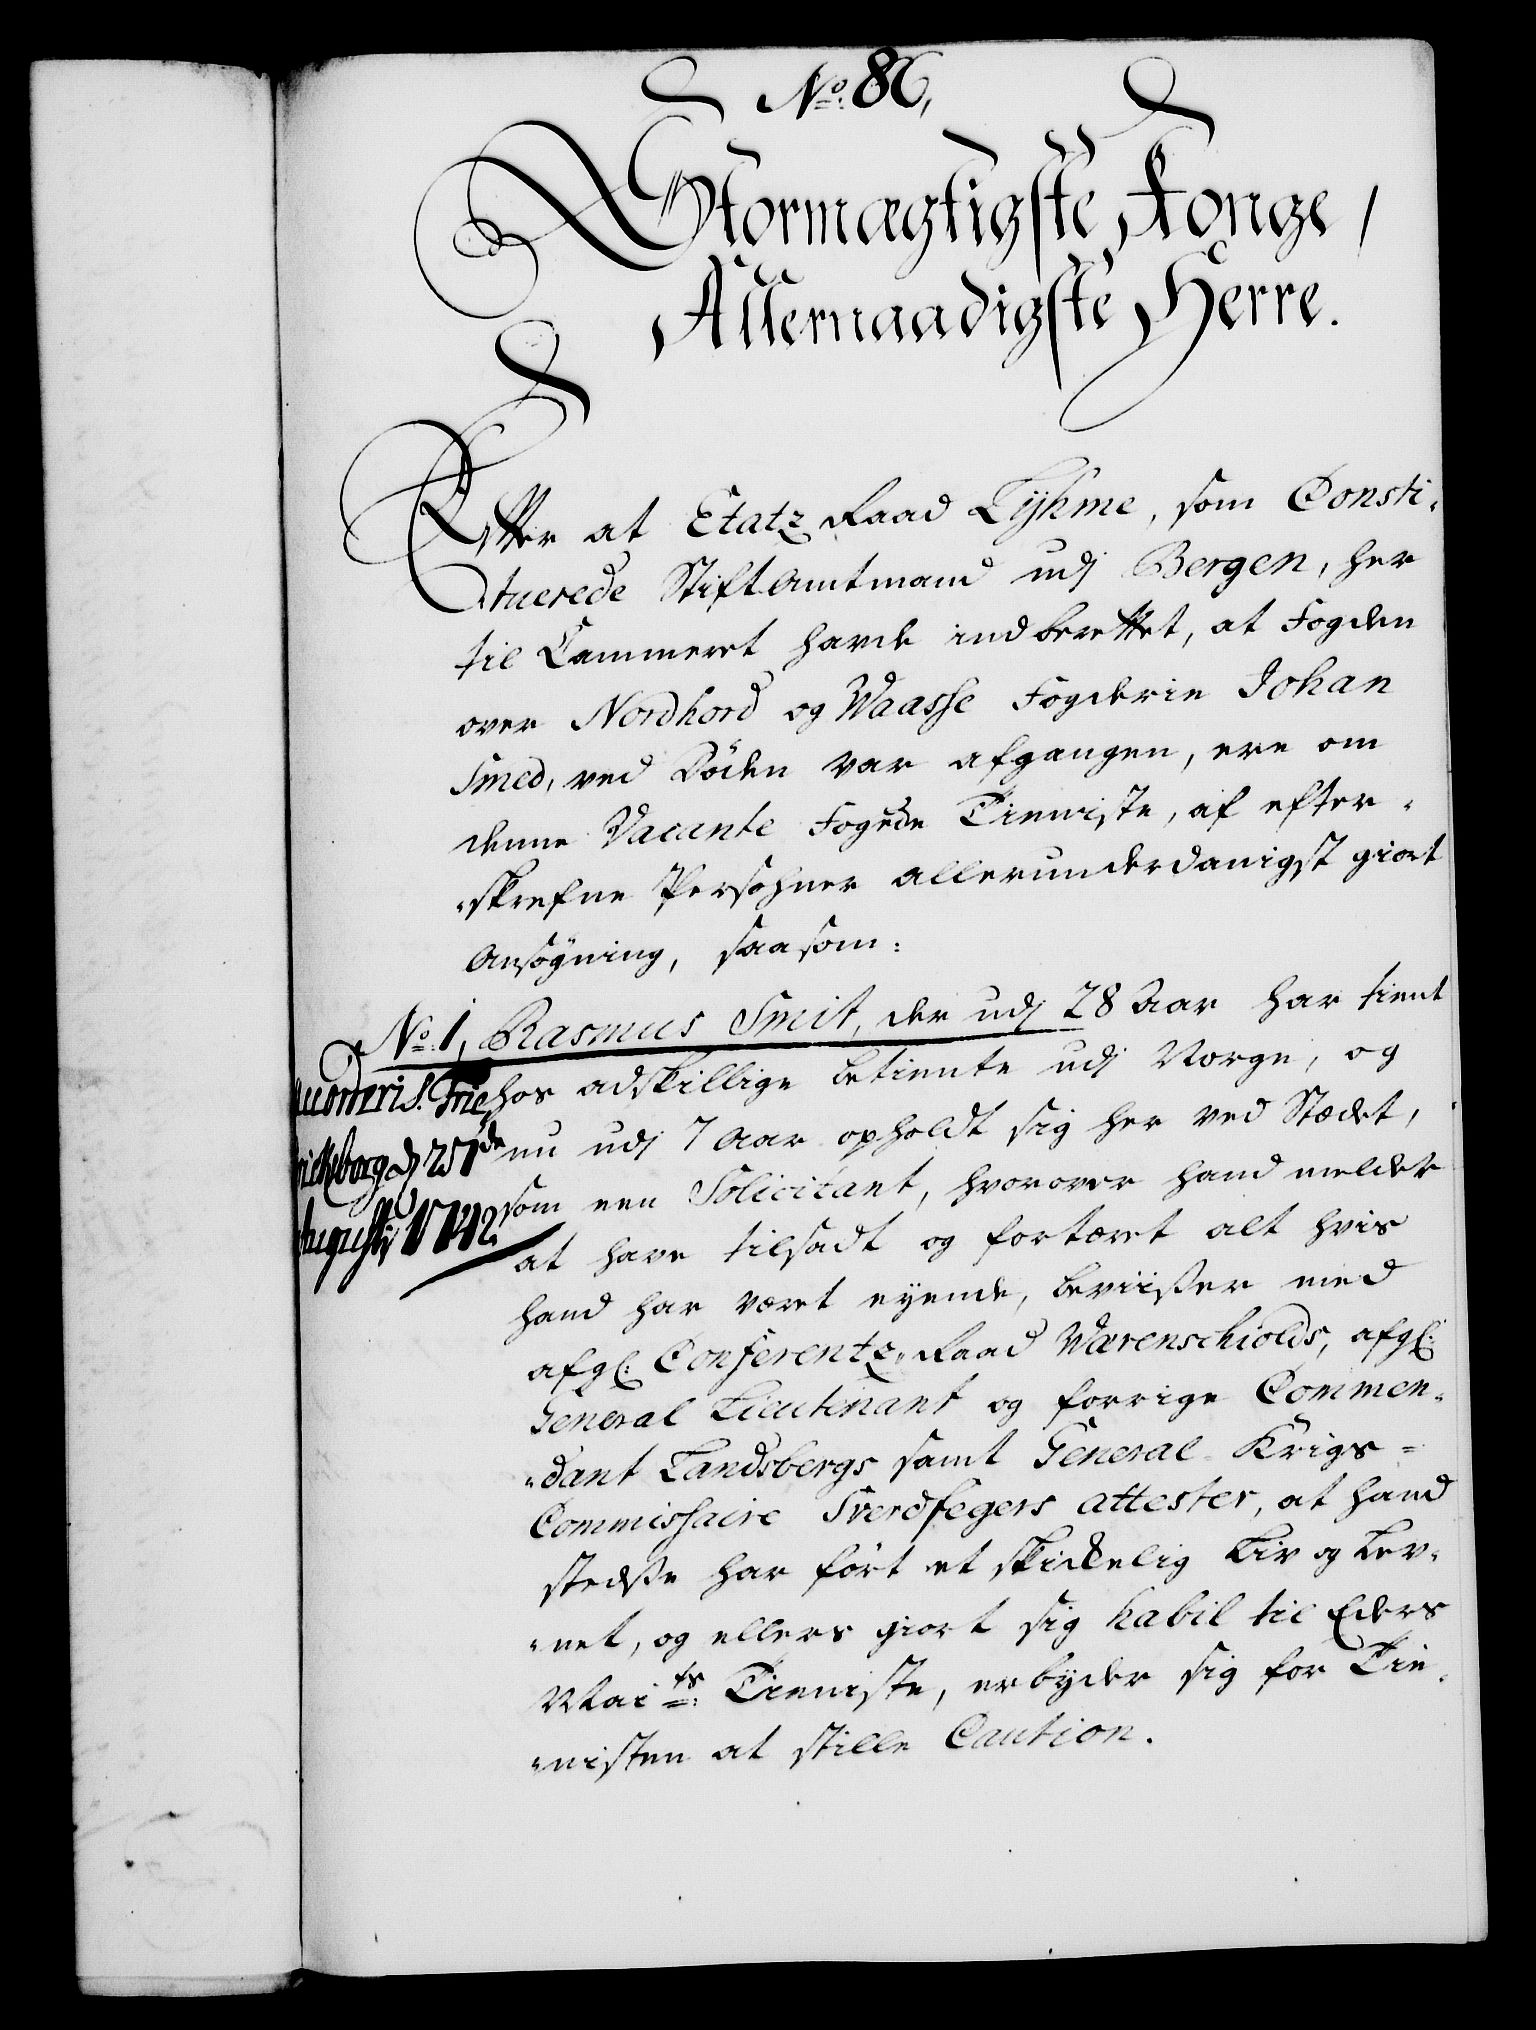 No: 86,
Stormægtigste Konge,
Allernaadigste Herre.
Efter at Etatz Raad Lyhme, som Consti-
tuerede Stiftamtmand udj Bergen, her
til Cammeret havde indberettet, at Fogden
over Nordhord og Waasse Fogderie Johan
Smed, ved Döden var afgangen, ere om
denne Vacante Fogede Tieniste, af efter-
skrefne Persohner allerunderdanigst giort
Ansögning, saasom:
No: 1, Rasmus Smit, der udj 28 Aar har tient
hos adskillige betiente udj Norge, og
nu udj 7 Aar opholdt sig her ved Stædet,
som een Solicitant, hvorover hand melder
at have tilsadt og fortæret alt hvis
hand har været eyende, beviißer med
afgl: Conferentz-Raad Wærenschiolds, afgl:
General Lieutinant og forrige Commen-
dant Landsbergs samt General-Krigs-
Commissaire Sverdfegers attester, at hand
stedse har fört et skickelig Liv og Lev-
net, og ellers giort sig habil til Eders
Maits: Tieniste, erbyder sig for Tie-
nisten at stille Caution.
Frie
d 25de
Augustj 1742.